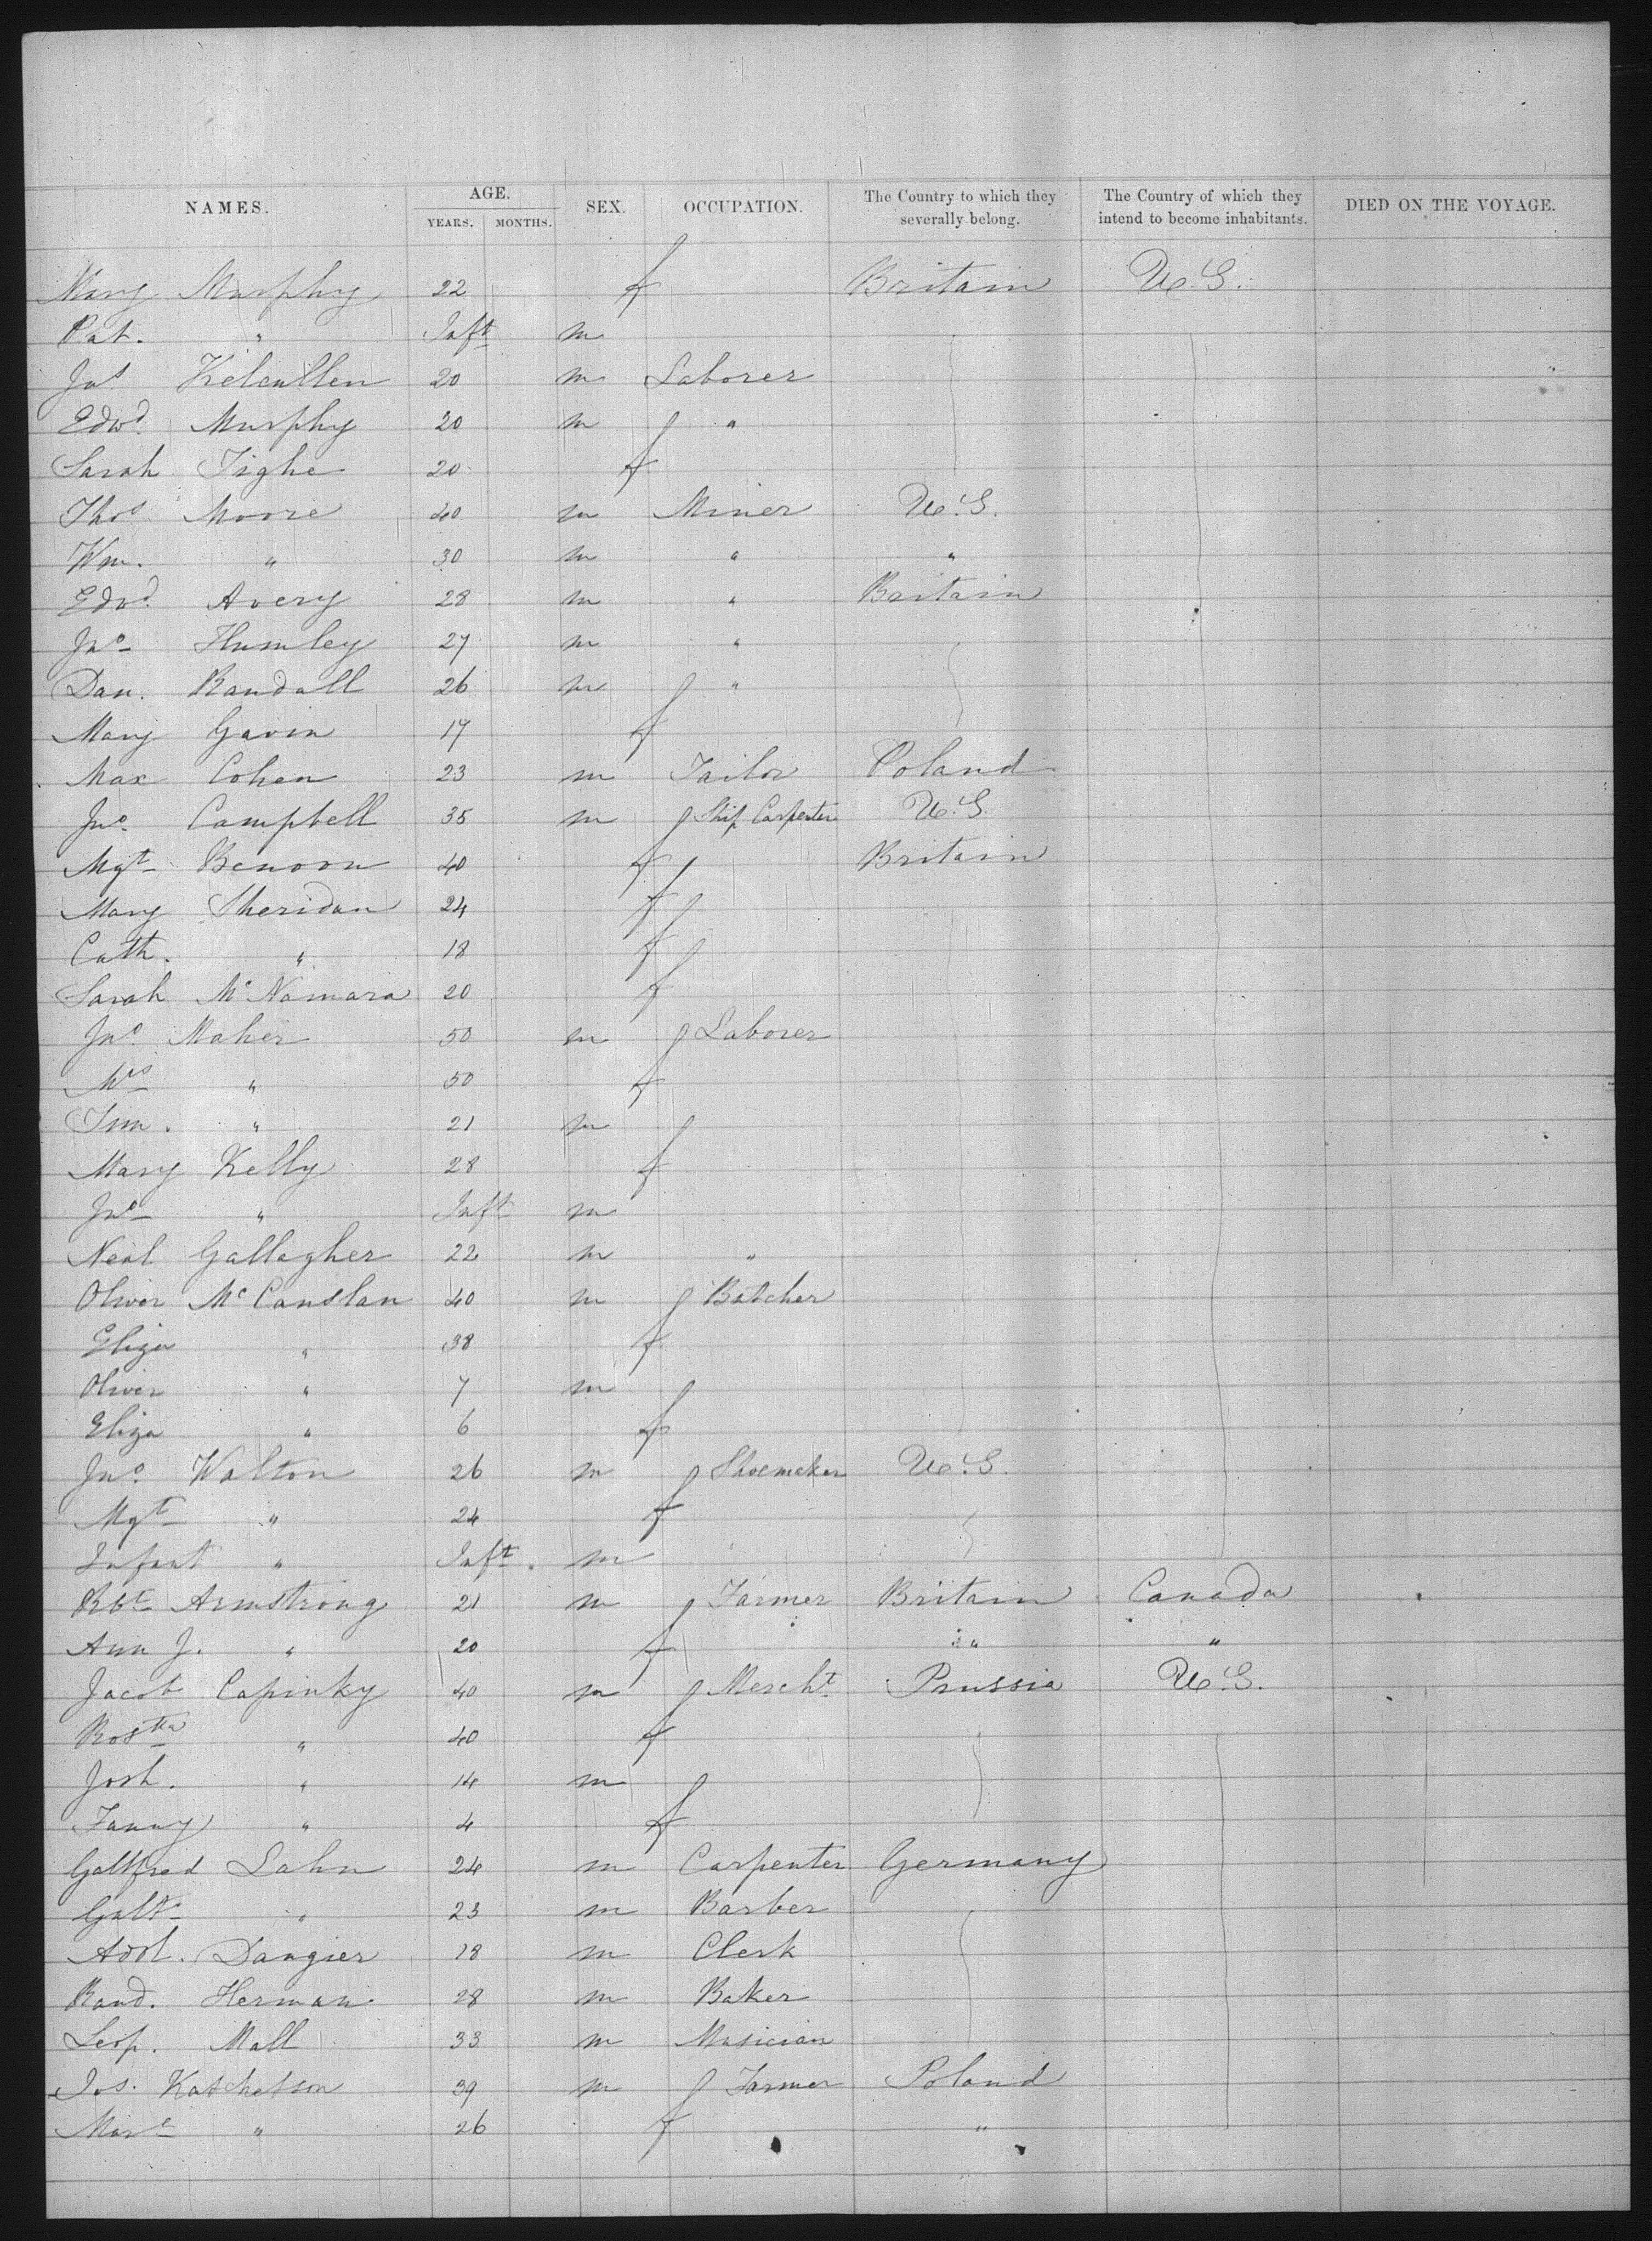 NAMES. AGE. SEX. OCCUPATION. The Country to which they severally belong. The Country of which they intend to become inhabitants. DIED ON THE VOYAGE.
YEARS. MONTHS.
Mary Murphy 22 f Britain U.S.
Pat. " Inft m
Jas Kilcullen 20 m Laborer
Edwd. Murphy 20 m "
Sarah Tighe 20 f
Thos. Moore 40 m Miner U.S.
Wm. " 30 m " "
Edwd. Avery 28 m " Britain
Jno. Humley 27 m "
Dan. Randall 26 m "
Mary Gavin 19 f
Max Cohen 23 m Tailor Poland
Jno. Campbell 35 m Ship Carpenter U.S.
Mgt. 40 f Britain
Mary Sheridan 24 f
Cath. " 18 f
Sarah McNamara 20 f
Jno. Maher 50 m Laborer
Mrs " 50 f
" 21 m
Mary Kelly 28 f
Jno. " Inft m
Neal Gallagher 22 m "
Oliver McCanslan 40 m Butcher
Eliza " 38 f
Oliver " 7 m
Eliza " 6 f
Jno. Walton 26 m Shoemaker U.S.
Mgt " 24 f
Infant " Inft. m
Rbt Armstrong 21 m Farmer Britain Canada
Ann J. " 20 f " "
Jacob Capinky 40 m Mercht Prussia U.S.
" 40 f
Josh. " 14 m
Fanny " 4 f
Gottfred Lahn 24 m Carpenter Germany
" 23 m Barber
Adol. Dangier 18 m Clerk
Rand. Herman 28 m Baker
Leop. Mall 33 m Musician
Jos. Katchelson 39 m Farmer Poland
" 26 f "